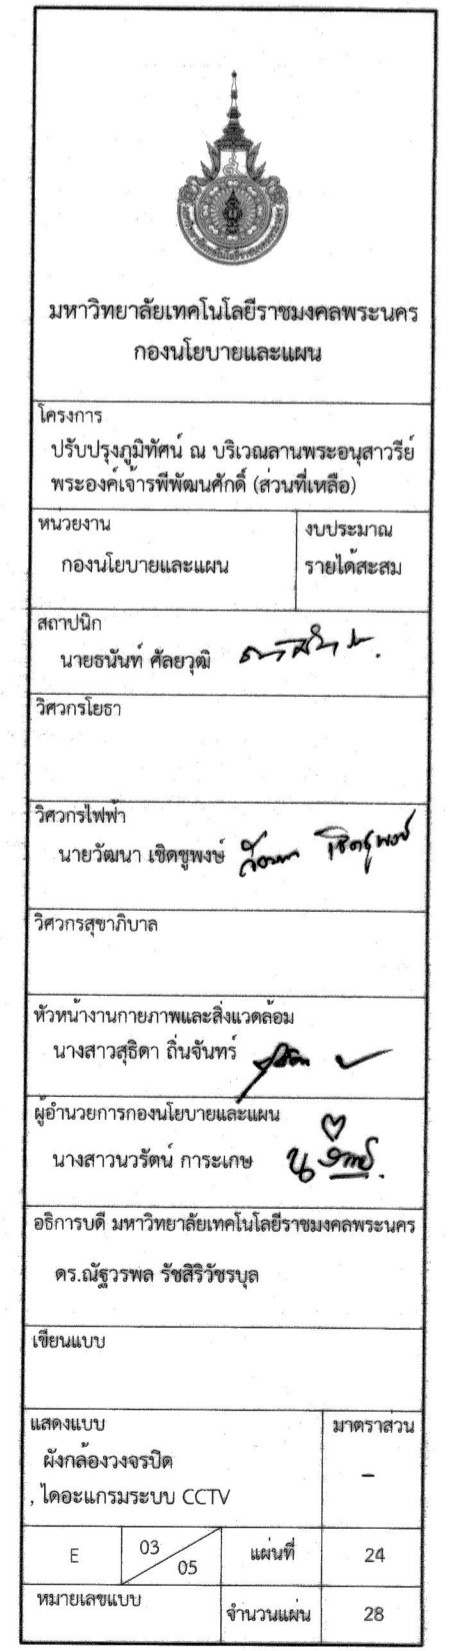 มหาวิทยาลัยเทคโนโลยีราชมงคลพระนคร
กองนโยบายและแผน
โครงการ
ปรับปรุงภูมิทัศน์ ณ บริเวณลานพระอนุสาวรีย์
พระองค์เจ้ารพีพัฒนศักดิ์ (ส่วนที่เหลือ)
หน่วยงาน
กองนโยบายและแผน
งบประมาณ
รายได้สะสม
สถาปนิก
นายธนันท์ ศัลยวุฒิ
วิศวกรโยธา
วิศวกรไฟฟ้า
นายวัฒนา เชิดชูพงษ์
วิศวกรสุขาภิบาล
หัวหน้างานกายภาพและสิ่งแวดล้อม
นางสาวสุธิดา ถิ่นจันทร์
ผู้อำนวยการกองนโยบายและแผน
นางสาวนวรัตน์ การะเกษ
อธิการบดี มหาวิทยาลัยเทคโนโลยีราชมงคลพระนคร
ดร.ณัฐวรพล รัชสิริวัชรบุล
เขียนแบบ
แสดงแบบ
ผังกล้องวงจรปิด
, ไดอะแกรมระบบ CCTV
มาตราส่วน
-
E 03 05 แผ่นที่ 24
หมายเลขแบบ จำนวนแผ่น 28